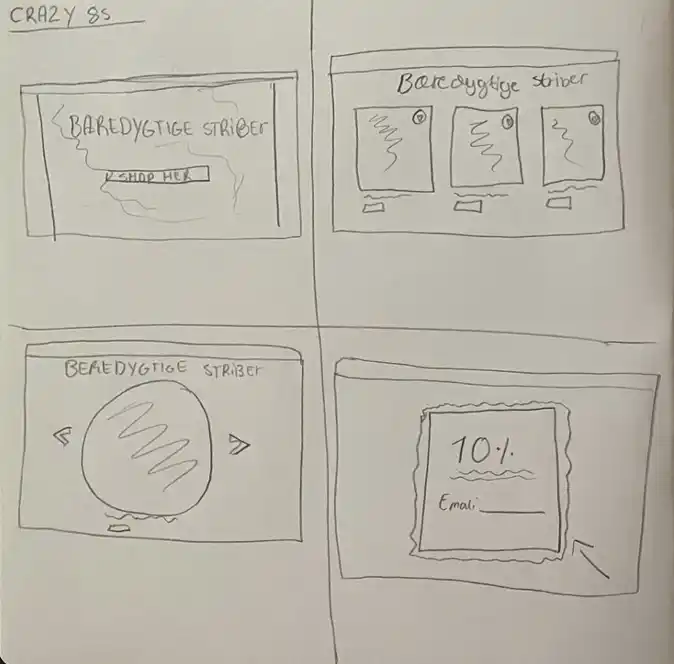 CRAZY 8s
BÆREDYGTIGE STRIBER
SHOP HER
Bæredygtige striber
BEREDYGTIGE STRIBER
10%
Email: